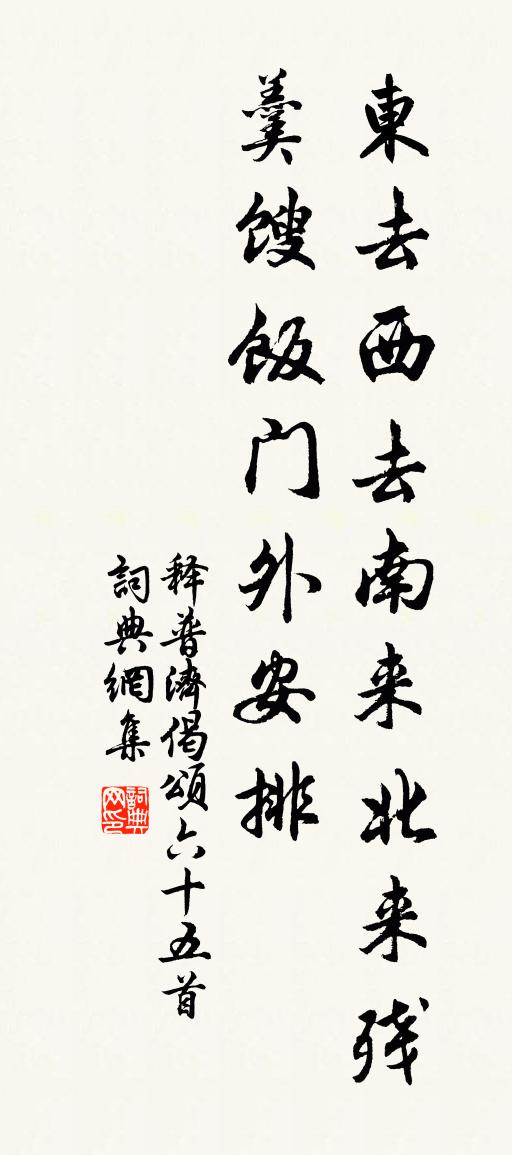 東去西去南来北来残
羹餿飯門外安排
释普濟偈頌六十五首
詞典網集
詞典网印